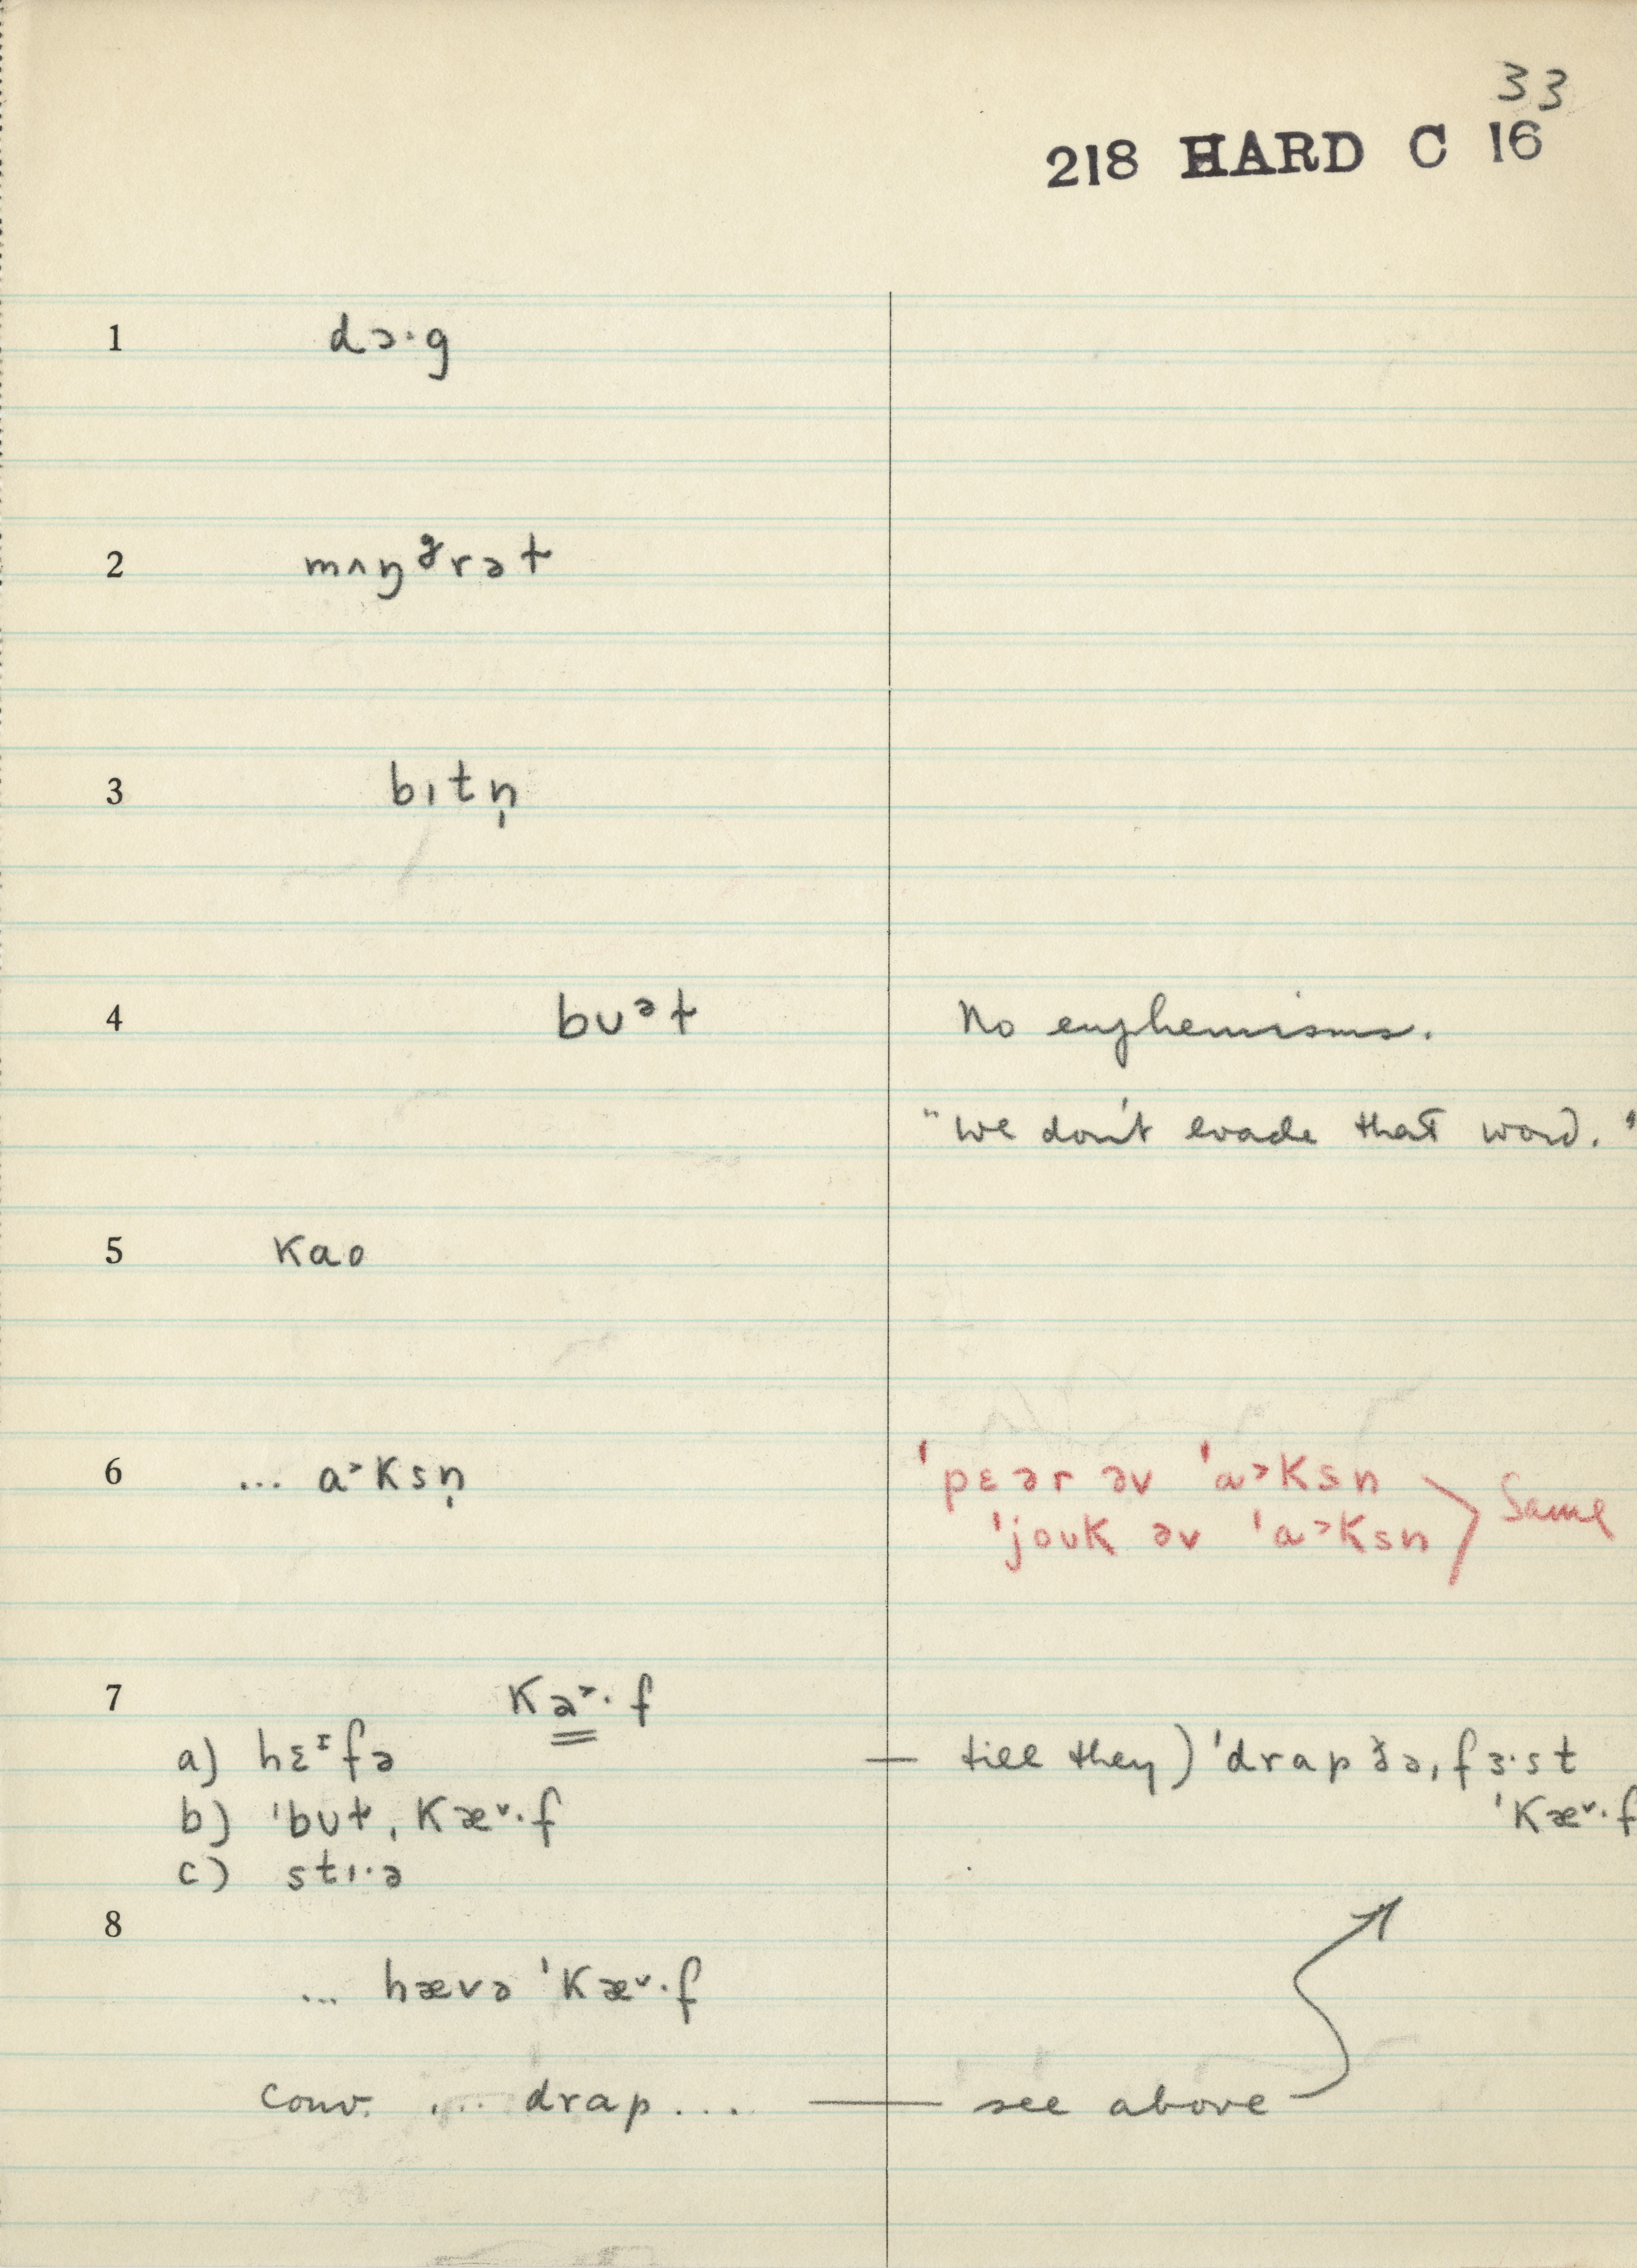 33
218 HARD C 16
1 dɔ·g
2 mʌŋᵍrəɫ
3 bɪtn̩
4 bʊᵊɫ No euphemisms.
"We don't evade that word."
5 kao
6 ... a˃ksn̩ ˈpɛər əv ˈa˃ksn
ˈjouk əv ˈa˃ksn Same
7 ka˃·f
a) hɛᶦfə — till they) ˈdrap ðə ˌfɜ·st
b) ˈbʊɫ ˌkæ˅·f ˈkæ˅·f
c) stɪ·ə
8
... hævə ˈkæ˅·f
conv. ... drap ... — see above